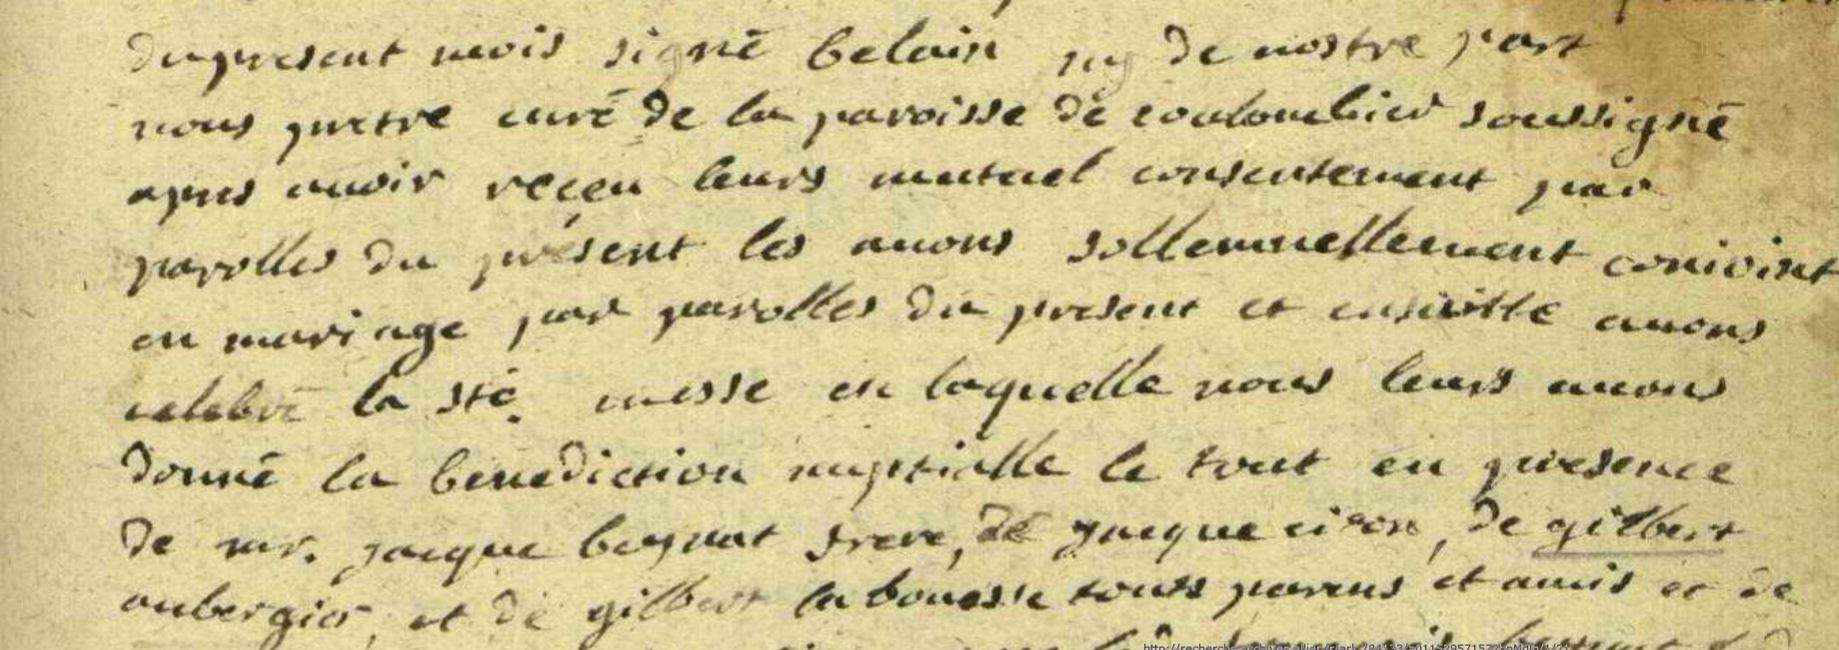 du present mois signé belain ny de nostre part
nous pretre curé de la paroisse de coulombier soussigné
apres auoir reçeu leurs mutuel consentement par
parolles du présent les auons sollemnellement conioint
en mariage par parolles du present et ensuitte auons
celebré la ste. messe en laquelle nous leurs auons
donné la benediction nuptialle le tout en presence
de mr. jacque beynat frere, de jacque, de gilbert
aubergier, et de gilbert labouesse touts parens et amis et de